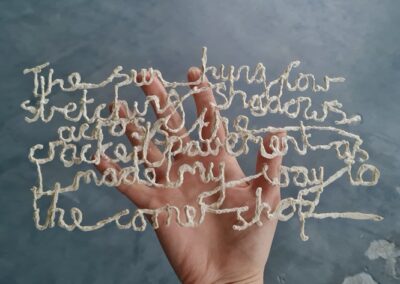 The sun hung low
stretching shadows
across the
cracked pavement as
I made my way to
the corner shop